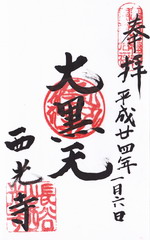 奉拝
平成廿四年一月六日
大黒天
西光寺